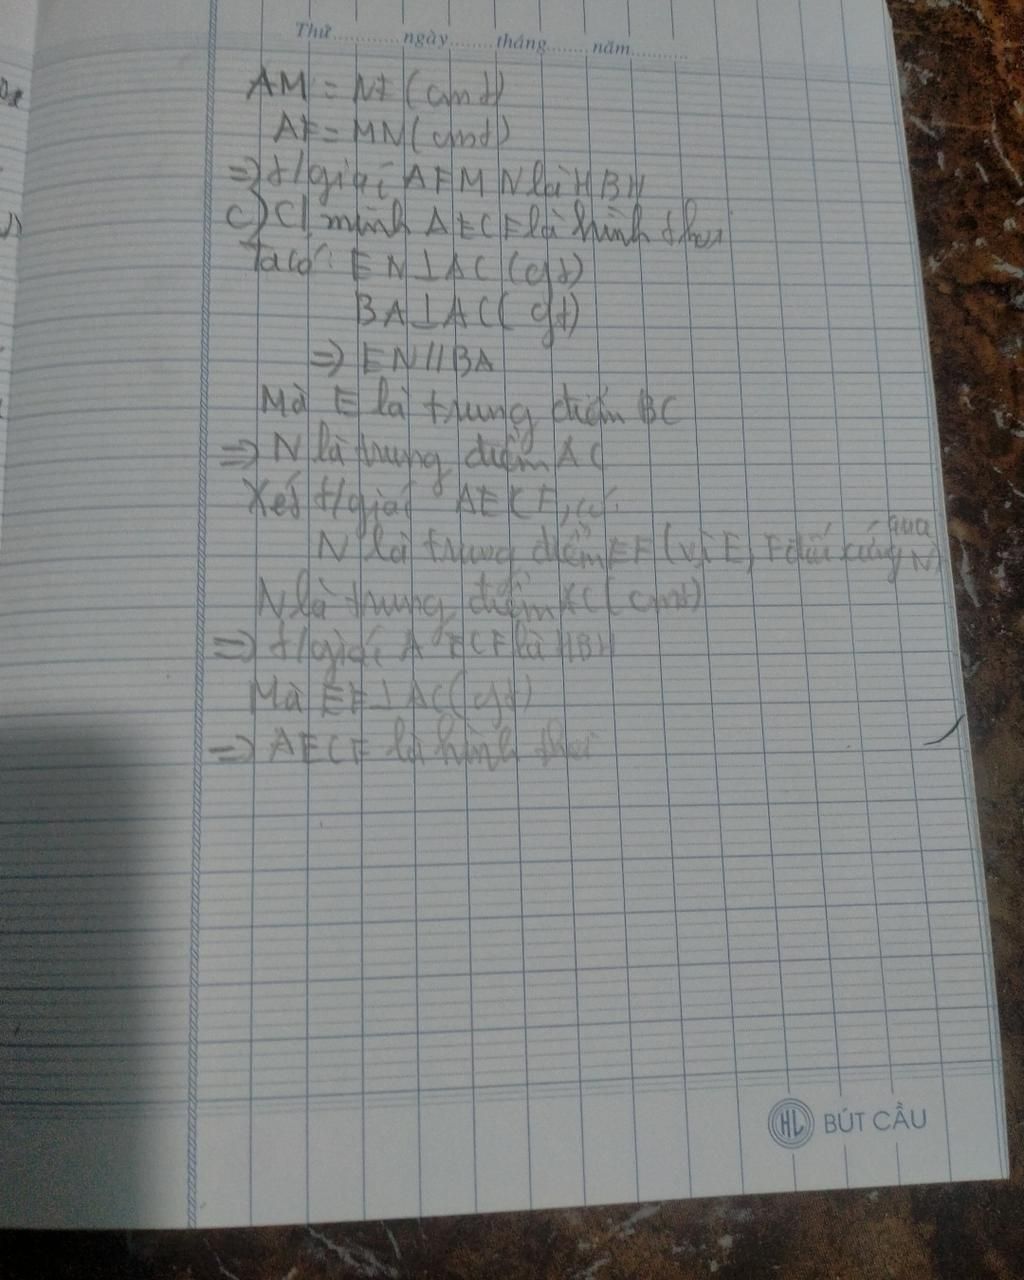 Thứ............ngày........tháng........năm...........
AM = NF (cmt)
AF = MN (cmt)
=> t/giác AFMN là HBH
c) C/minh AECF là hình thoi
Ta có: EN⊥AC (gt)
BA⊥AC (gt)
=> EN//BA
Mà E là trung điểm BC
=> N là trung điểm AC
Xét t/giác AECF, có:
N là trung điểm EF (vì E, F đối xứng qua N)
N là trung điểm AC (cmt)
=> t/giác AECF là HBH
Mà EF⊥AC (gt)
=> AECF là hình thoi
HL BÚT CẦU